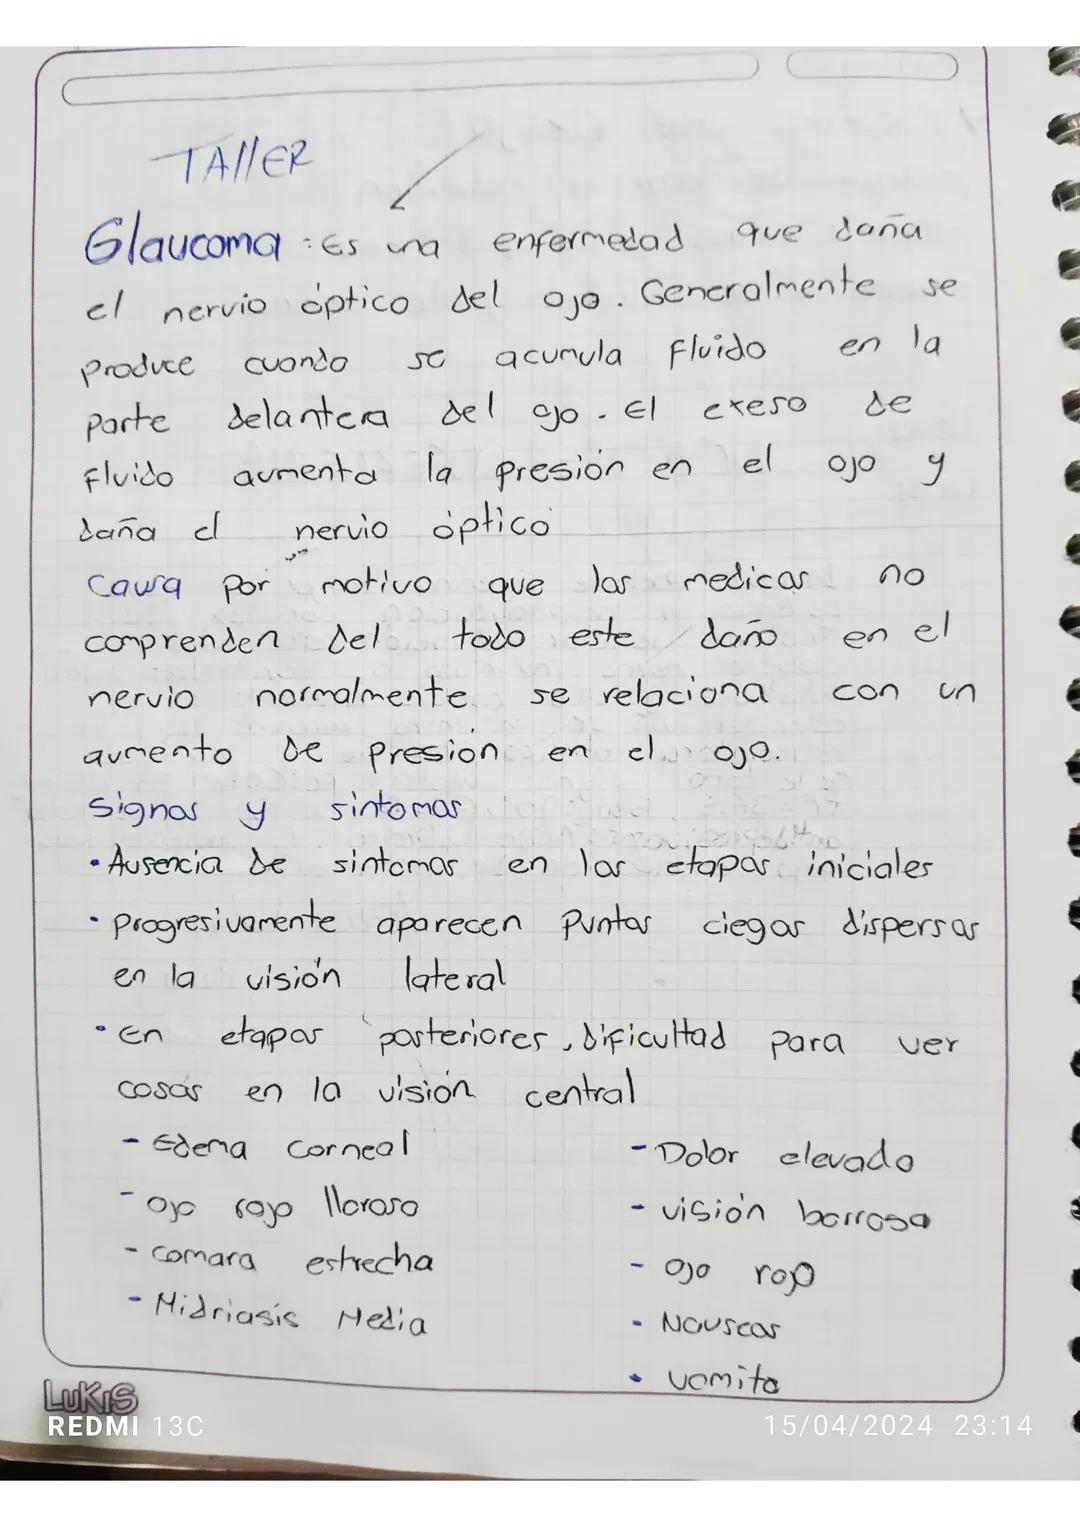 TAllER
Glaucoma : Es una enfermedad que daña
el nervio óptico del ojo. Generalmente se
produce cuando se acumula fluido en la
parte delantera del ojo. El exeso de
fluido aumenta la presión en el ojo y
daña el nervio óptico
Causa por motivo que los medicos no
comprenden del todo este daño en el
nervio normalmente se relaciona con un
aumento de presión en el ojo.
signos y sintomas
• Ausencia de sintomas en las etapas iniciales
• progresivamente aparecen puntos ciegos dispersos
en la visión lateral
• En etapas posteriores, dificultad para ver
cosas en la visión central
- Edema corneal
- ojo rojo lloroso
- camara estrecha
- Midriasis Media
- Dolor elevado
- visión borrosa
- ojo rojo
- Nauseas
• vomito
LUKIS
REDMI 13C
15/04/2024 23:14